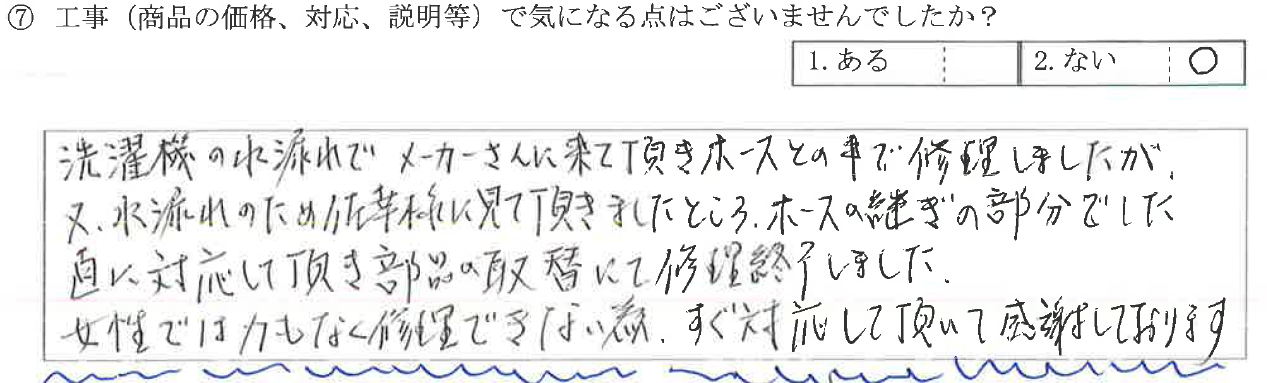 ⑦ 工事（商品の価格、対応、説明等）で気になる点はございませんでしたか？
1. ある 2. ない ○
洗濯機の水漏れで メーカーさんに来て頂きホースとの事で修理しましたが、
又、水漏れのため佐華様に見て頂きましたところ、ホースの継ぎの部分でした
直に対応して頂き部品の取替にて修理終了しました。
女性では力もなく修理できない為、すぐ対応して頂いて感謝しております